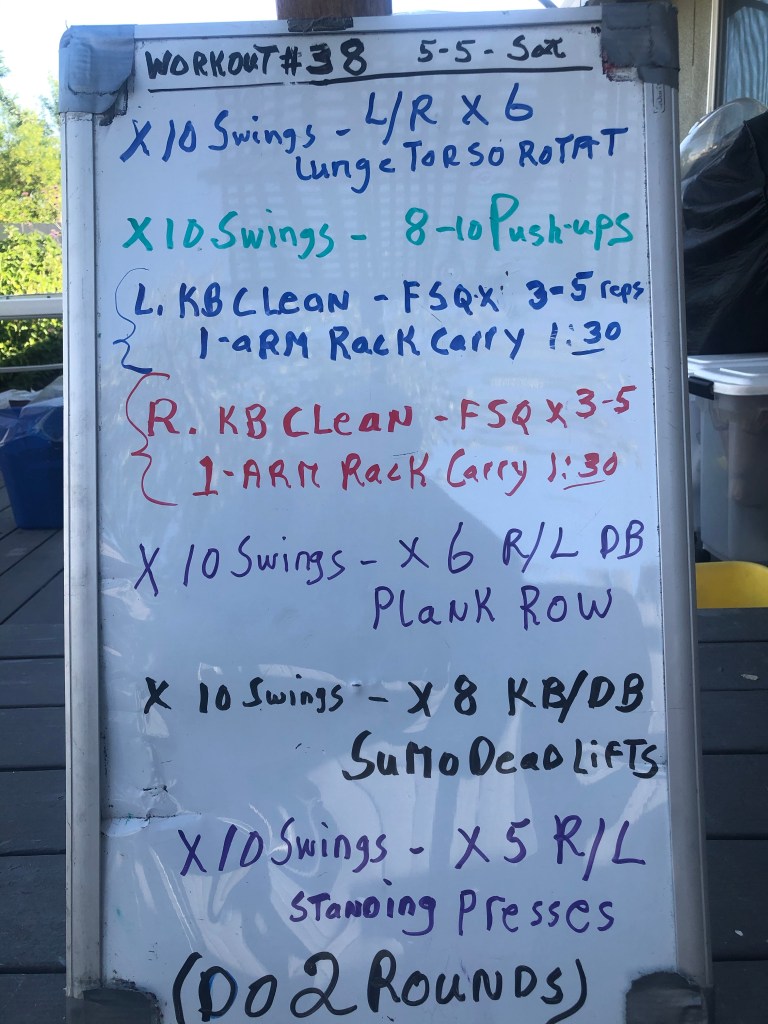 WORKOUT #38 5-5-Sat
X10 Swings - L/R X 6
Lunge TORSO ROTAT
X10 Swings - 8-10 Push-ups
L. KB CLeaN - FSQ X 3-5 reps
1-aRM Rack Carry 1:30
R. KB CLeaN - FSQ X 3-5
1-ARM Rack Carry 1:30
X 10 Swings - X 6 R/L DB
PLaNK ROW
X 10 Swings - X 8 KB/DB
SuMo DeaD LiFTS
X 10 Swings - X 5 R/L
STaNDing Presses
(DO 2 ROUNDS)